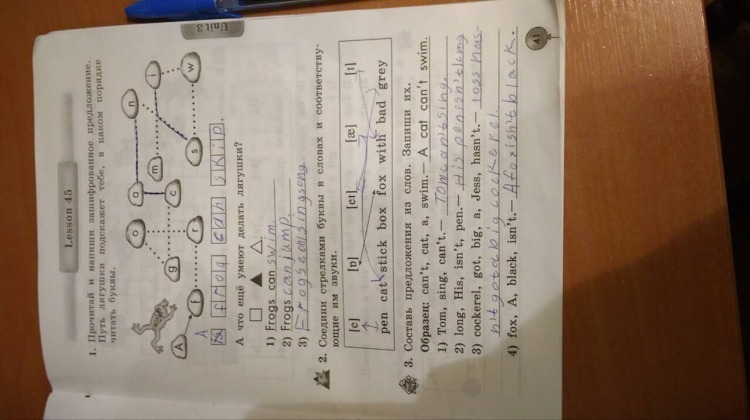 Lesson 45
1. Прочитай и напиши зашифрованное предложение.
Путь лягушки подскажет тебе, в каком порядке
читать буквы.
A f g r o a c m n s i w
A frog can skip.
А что ещё умеют делать лягушки?
1) Frogs can swim.
2) Frogs can jump.
3) Frogs can sing song
2. Соедини стрелками буквы в словах и соответству-
ющие им звуки.
[e] [ɒ] [eɪ] [æ] [ɪ]
pen cat stick box fox with bad grey
3. Составь предложения из слов. Запиши их.
Образец: can't, cat, a, swim.— A cat can't swim.
1) Tom, sing, can't.— Tom can't sing.
2) long, His, isn't, pen.— His pen isn't long
3) cockerel, got, big, a, Jess, hasn't.— Joss has-
n't got a big cockerel.
4) fox, A, black, isn't.— A fox isn't black.
Unit 3
41